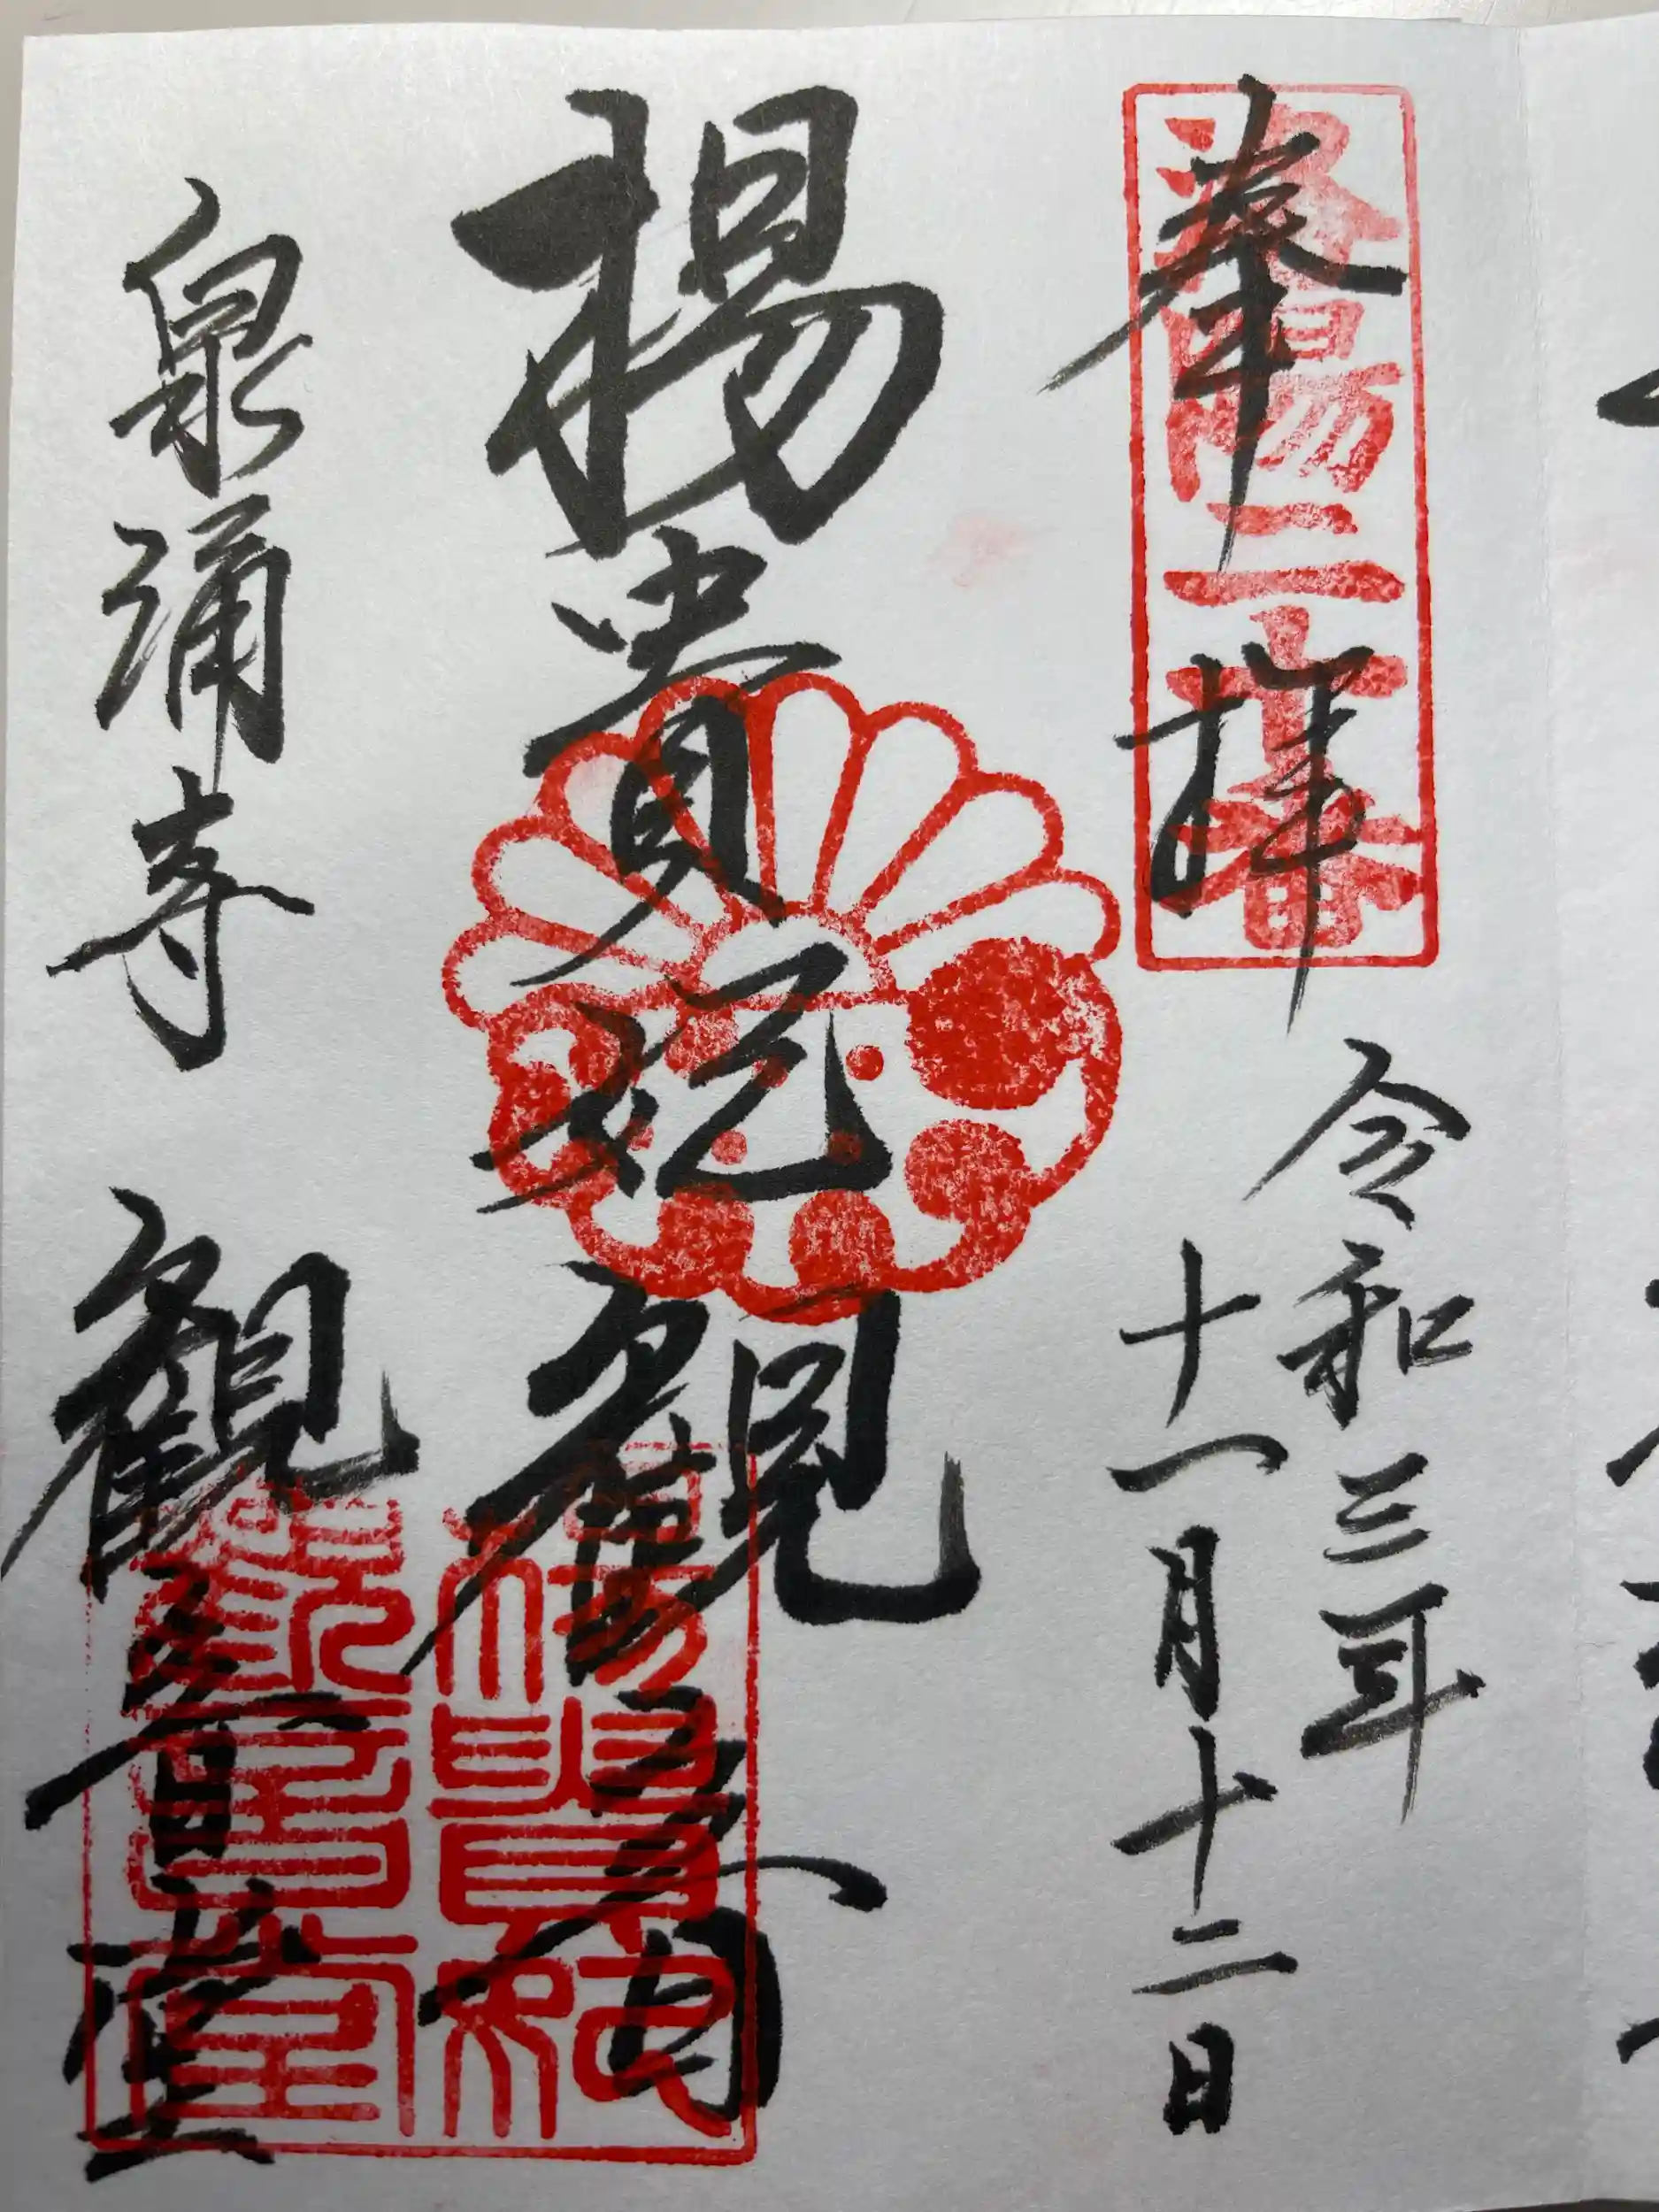 奉拝
洛陽二十番
令和三年
十一月十二日
楊貴妃観音
楊貴妃
観音堂
泉涌寺 観音堂